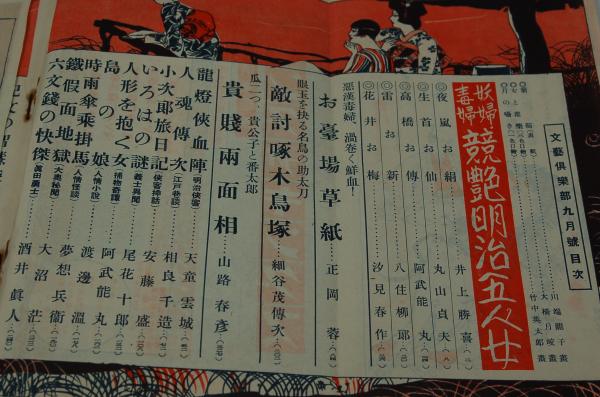 文藝俱樂部九月號目次
川端龍子畫
大橋月皎畫
竹中英太郎畫
妖婦
毒婦
競艶明治五人女
◎夜嵐お絹
井上勝喜
◎生首お仙
丸山貞夫
◎高橋お傳
阿武能丸
◎雷お新
八住柳郎
◎花井お梅
汐見春作
惡漢毒婦、渦卷く鮮血!
お臺場草紙
正岡蓉
眼玉を抉る名鳥の助太刀
敵討啄木鳥塚
細谷茂傳次
瓜二つ、貴公子と番太郎
貴賤兩面相
山路春彦
龍燈俠血陣(明治俠客)
天童雲城
人魂傳次(江戸巷談)
相良千造
小次郎旅日記(俠客神話)
安藤盛
いろはの謎(義士異聞)
尾花十郎
人形を抱く女(捕物奇譚)
阿武能丸
島の娘(人情小說)
渡邊溫
時雨傘乘掛馬(人情怪談)
夢想兵衞
鐵假面地獄(大奥秘聞)
大沼茫
六文錢の快傑(眞田勇士)
酒井眞人